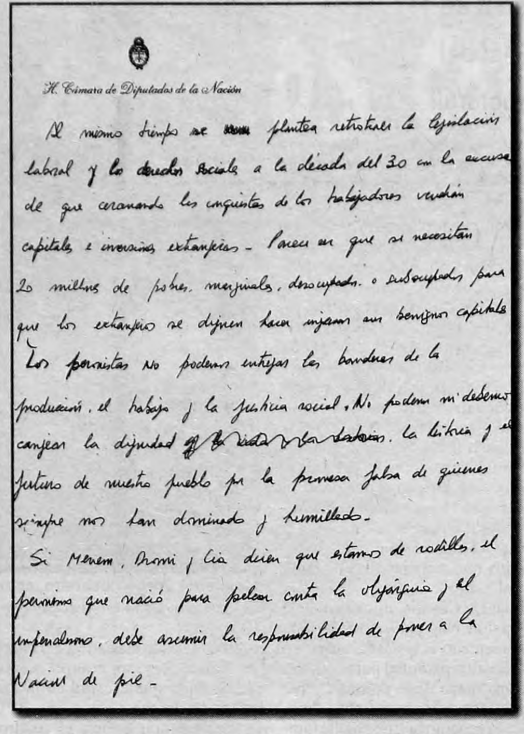 H. Cámara de Diputados de la Nación
Al mismo tiempo se plantea retrotraer la legislación
laboral y los derechos sociales a la década del 30 con la excusa
de que cercenando las conquistas de los trabajadores vendrán
capitales e inversiones extranjeras - Parece ser que se necesitan
20 millones de pobres, marginales, desocupados o subocupados para
que los extranjeros se dignen hacer ingresar sus benignos capitales
Los peronistas No podemos entregar las banderas de la
producción, el trabajo y la justicia social. No podemos ni debemos
canjear la dignidad, la historia y el
futuro de nuestro pueblo por la promesa falsa de quienes
siempre nos han dominado y humillado -
Si Menem, Dromi y Cia dicen que estamos de rodillas, el
peronismo que nació para pelear contra la oligarquía y el
imperialismo, debe asumir la responsabilidad de poner a la
Nación de pie -